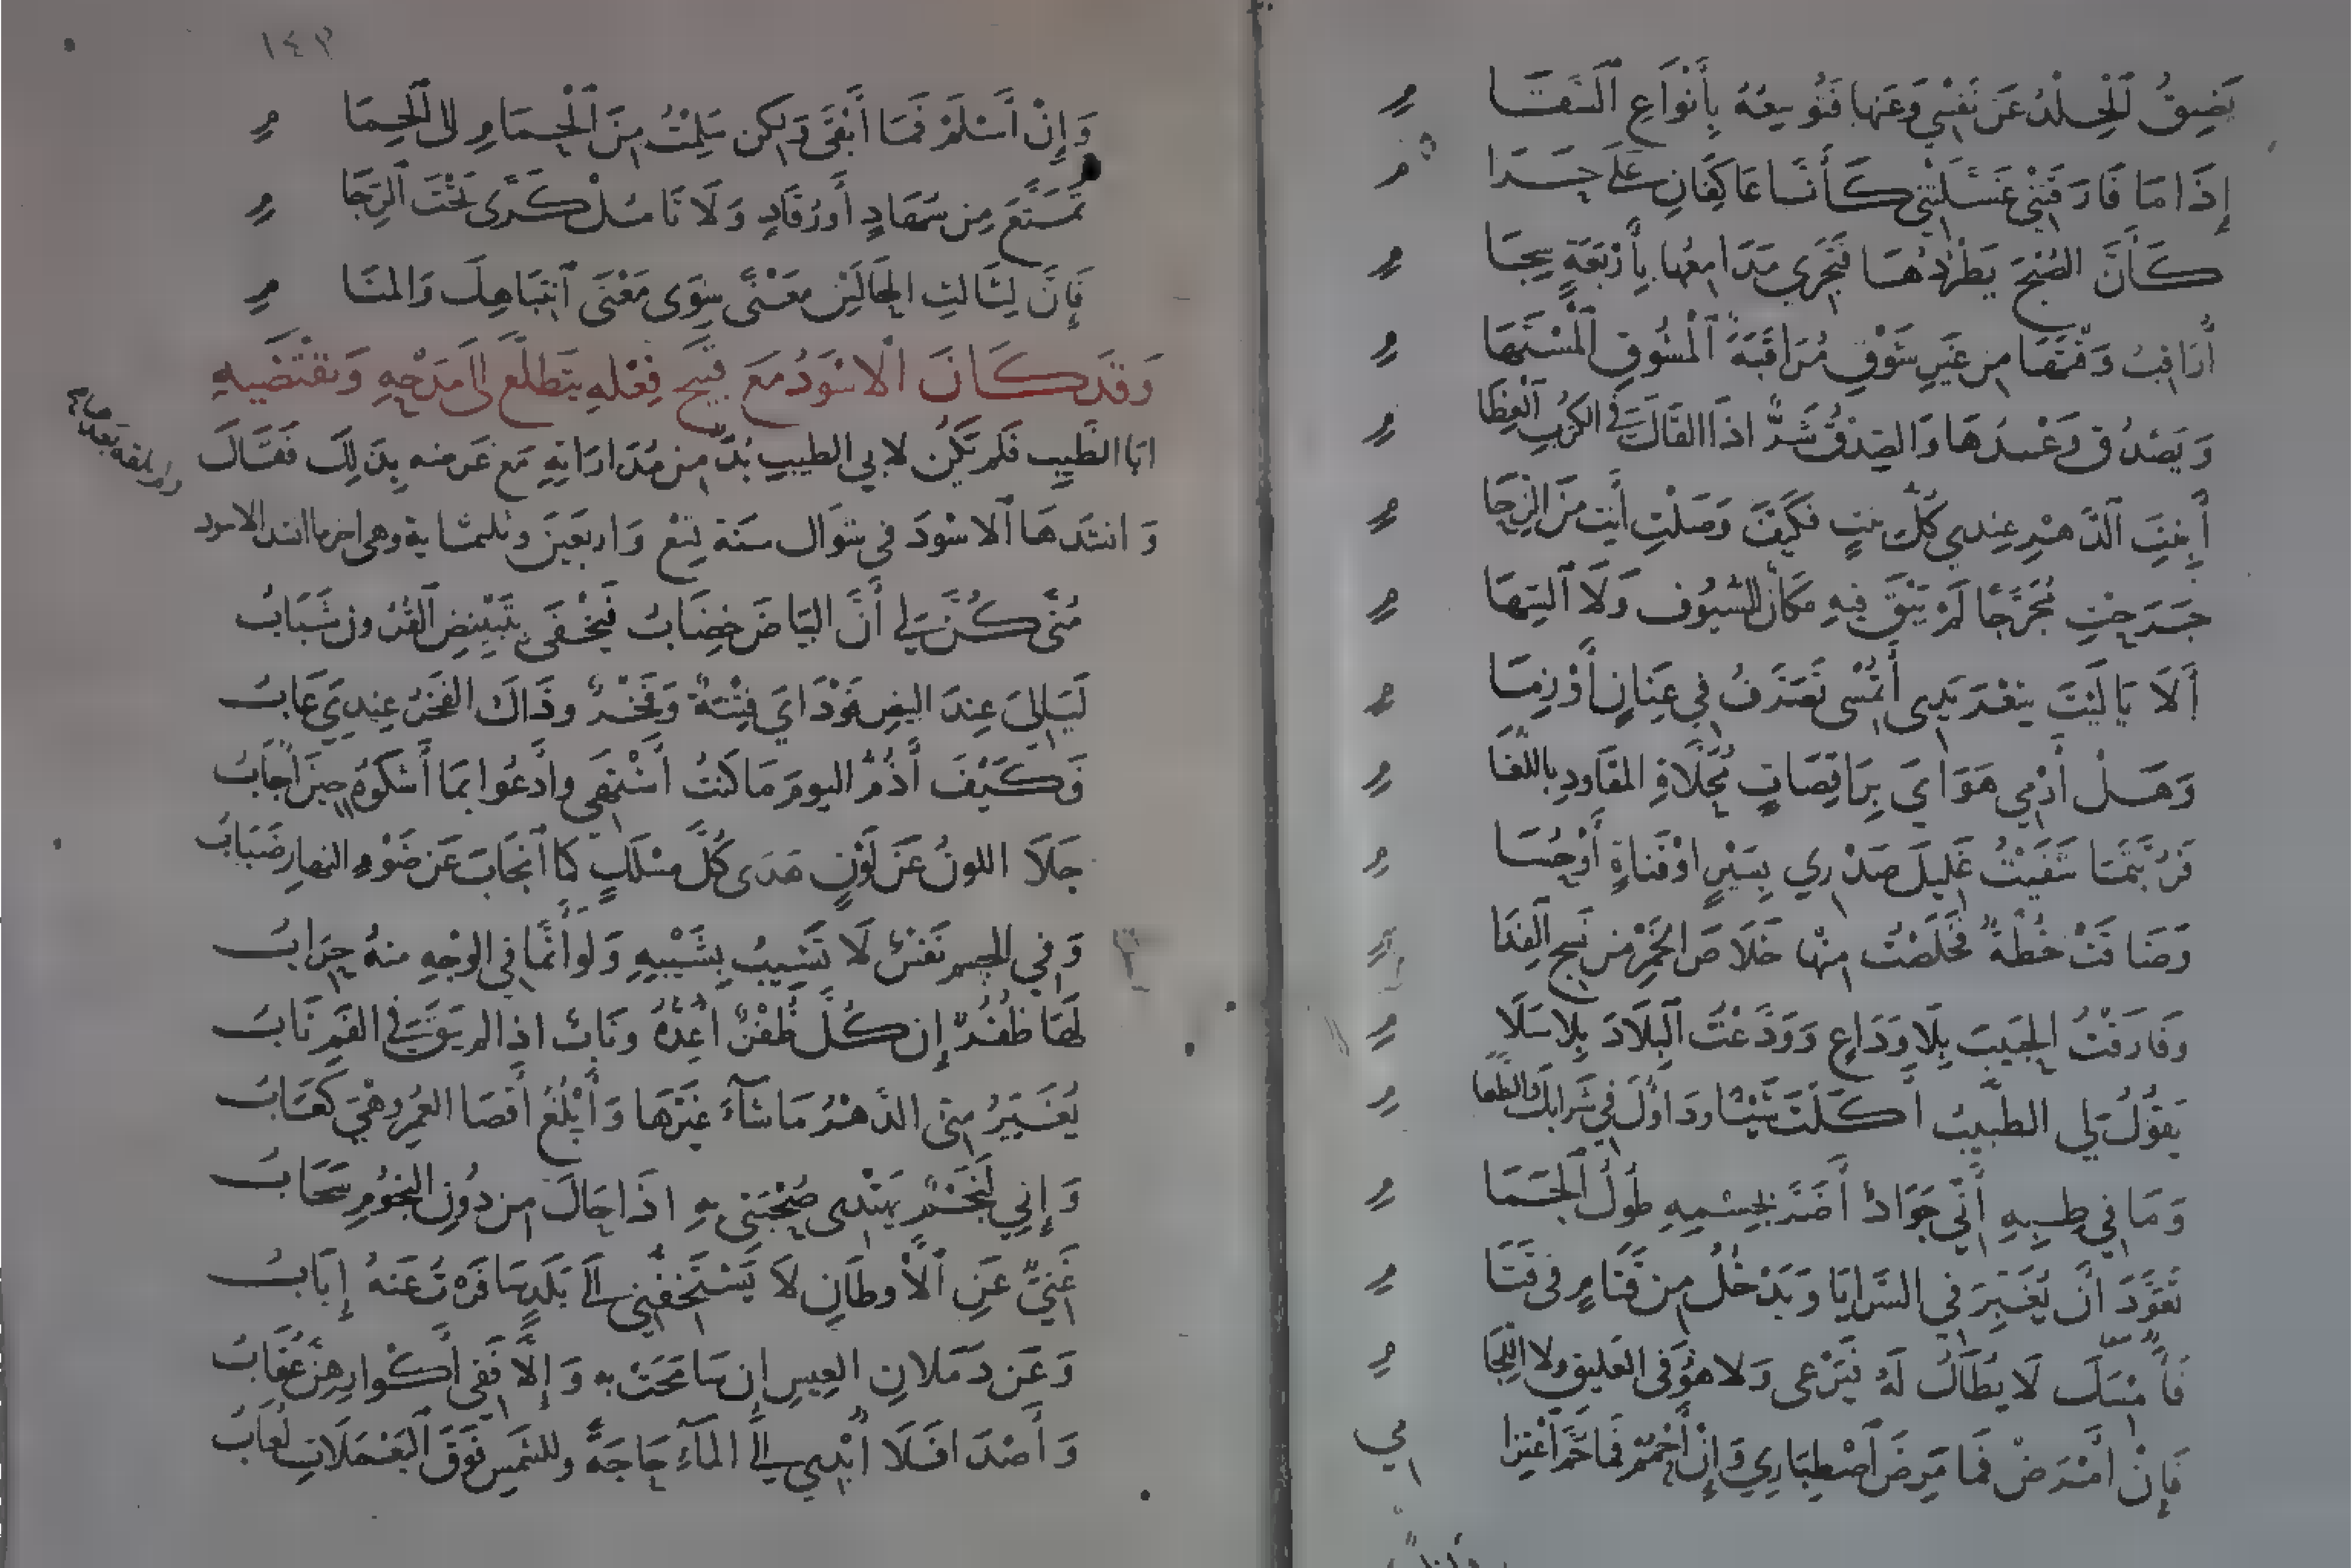 يَضِيقُ الْجِلْدُ عَن نَفْسِي وَعَنها فَتُوسِعُهُ بِأَنْوَاعِ السَّقَا مِ
إِذَا مَا فَارَقَتْنِي غَسَّلَتْنِي كَأَنَّا عَاكِفَانِ عَلَى حَرَا مِ
كَأَنَّ الصُّبْحَ يَطْرُدُهَا فَتَجْرِي مَدَامِعُها بِأَرْبَعَةٍ سِجَا مِ
أُرَاقِبُ وَقْتَهَا مِن غَيْرِ شَوْقٍ مُرَاقَبَةَ الْمَشُوقِ الْمُسْتَهَا مِ
وَيَصْدُقُ وَعْدُهَا وَالصِّدْقُ شَرٌّ اذَا القَاكَ فِي الكُرَبِ الْعِظَا مِ
أَبِنْتَ الدَّهْرِ عِندِي كُلُّ بِنْتٍ فَكَيْفَ وَصَلْتِ أَنتِ مِنَ الزِّحَا مِ
جَرَحْتِ مُجَرَّحًا لَمْ يَبْقَ فِيهِ مَكَانٌ للسُّيُوف وَلَا السِّهَا مِ
أَلَا يَا لَيْتَ شِعْرَ يَدِي أَتُمْسِي تَصَرَّفُ فِي عِنَانٍ أَوْ زِمَا مِ
وَهَلْ أَرْمِي هَوَايَ بِرَاقِصَاتٍ مُحَلَّاةِ المَقَاوِدِ بِاللُّغَا مِ
فَرُبَّتَمَا شَفَيْتُ غَلِيلَ صَدْرِي بِسَيْرٍ اوْ قَنَاةٍ أَوْ حُسَا مِ
وَضَاقَتْ خُطَّةٌ فَخَلَصْتُ مِنْها خَلَاصَ الخَمْرِ مِن نَسْجِ الْفِدَا مِ
وَفَارَقْتُ الحَبِيبَ بِلَا وَدَاعٍ وَوَدَّعْتُ الْبِلَادَ بِلا سَلَا مِ
يَقُولُ لِي الطَّبِيبُ أَكَلْتَ شَيْئًا وَدَاؤُكَ فِي شَرَابِكَ وَالطَّعا مِ
وَمَا فِي طِبِهِ أَنِّي جَوَادٌ أَضَرَّ بِجِسْمِهِ طُولُ الْجَمَا مِ
تَعَوَّدَ أَن يُغَبِّرَ فِي السَّرَايَا وَيَدْخُلُ مِن قَتَامٍ فِي قَتَا مِ
فَأُمْسِكَ لَا يُطَالُ لَهُ فَيَرْعى وَلا هُوَ فِي العَلِيقِ ولا اللِّجَا مِ
فَإِنْ أَمْرَضْ فَمَا مَرِضَ اصْطِبَارِي وَإِنْ أُحْمَمْ فَمَا حُمَّ اعْتِزَا مِي
١٤٢
وَإِنْ أَسْلَمْ فَمَا أَبْقَى وَلكِن سَلِمْتُ مِنَ الْحِمَامِ إِلى الْحِمَا مِ
تَمَتَّعْ مِن سُهَادٍ أَو رُقَادٍ وَلَا تَأْمُلْ كَرًى تَحْتَ الرِّجَا مِ
فَإِنَّ لِثَالِثِ الحَالَيْنِ مَعْنًى سِوَى مَعْنَى انْتِبَاهِكَ وَالمَنَا مِ
وَقَد كَانَ الْاسْوَدُ مَعَ قَبِيحِ فِعْلِهِ يَتَطَلَّعُ إِلَى مَدْحِهِ وَيَقْتَضِيهِ
ابَا الطَّيِبِ فَلَم يَكُن لابي الطيبِ بُدٌّ مِن مُدَارَاتِهِ مَع غَرَضِهِ بِذَلِكَ فَقَالَ
وَانشَدهَا الاسْوَدَ في شوَال سَنَة تِسْع وَاربَعِينَ وثلثمايةٍ وهي اخر ما انشد الاسود
ولم يلقه بعدها
مُنًى كُنَّ لِي أَنَّ البَيَاضَ خِضَابُ فَيَخْفَى بِتَبْيِيضِ القُرُونِ شَبَابُ
لَيَالِيَ عِندَ البِيضِ فَوْدَايَ فِتْنَةٌ وَفَخْرٌ وذَاكَ الفَخْرُ عِندِيَ عَابُ
فَكَيْفَ أَذُمُّ اليومَ مَا كُنتُ أَشْتَهِي وأَدعُوا بِمَا أَشكُوهُ حِينَ أُجَابُ
جَلَا اللونُ عَن لَوْنٍ هَدَى كُلَّ مَسْلَكٍ كَمَا انْجَابَ عَن ضَوْءِ النهارِ ضَبَابُ
وَفِي الجِسمِ نَفْسٌ لَا تَشِيبُ بِشَيْبِهِ وَلَو أَنَّ مَا فِي الوَجْهِ مِنهُ حِرَابُ
لَهَا ظُفُرٌ إِن كَلَّ ظُفْرٌ أُعِدُّهُ وَنَابٌ اذا لم يَبْقَ فِي الفَمِ نَابُ
يُغَيِّرُ مِنّي الدَّهْرُ مَا شَآءَ غَيْرَهَا وَأَبْلُغُ أَقْصَا العُمْرِ وَهْيَ كَعَابُ
وَإِنِّي لَنَجْمٌ يَهْتَدِى صُحْبَتِي بِهِ اذَا حَالَ مِن دُونِ النُّجُومِ سَحَابُ
غَنِيٌّ عَنِ الْأَوطَانِ لَا يَسْتَخِفُّنِي إِلَى بَلَدٍ سَافَرْتُ عَنهُ إِيَابُ
وَعَن ذَمَلَانِ العِيسِ إِن سَامَحَتْ بِهِ وَإِلَّا فَفِي أَكْوَارِهِنَّ عُقَابُ
وَأَصْدَا فَلَا أُبْدِي إِلَى المَآءِ حَاجَةً وللشمسِ فَوْقَ الْيَعْمَلَاتِ لُعَابُ